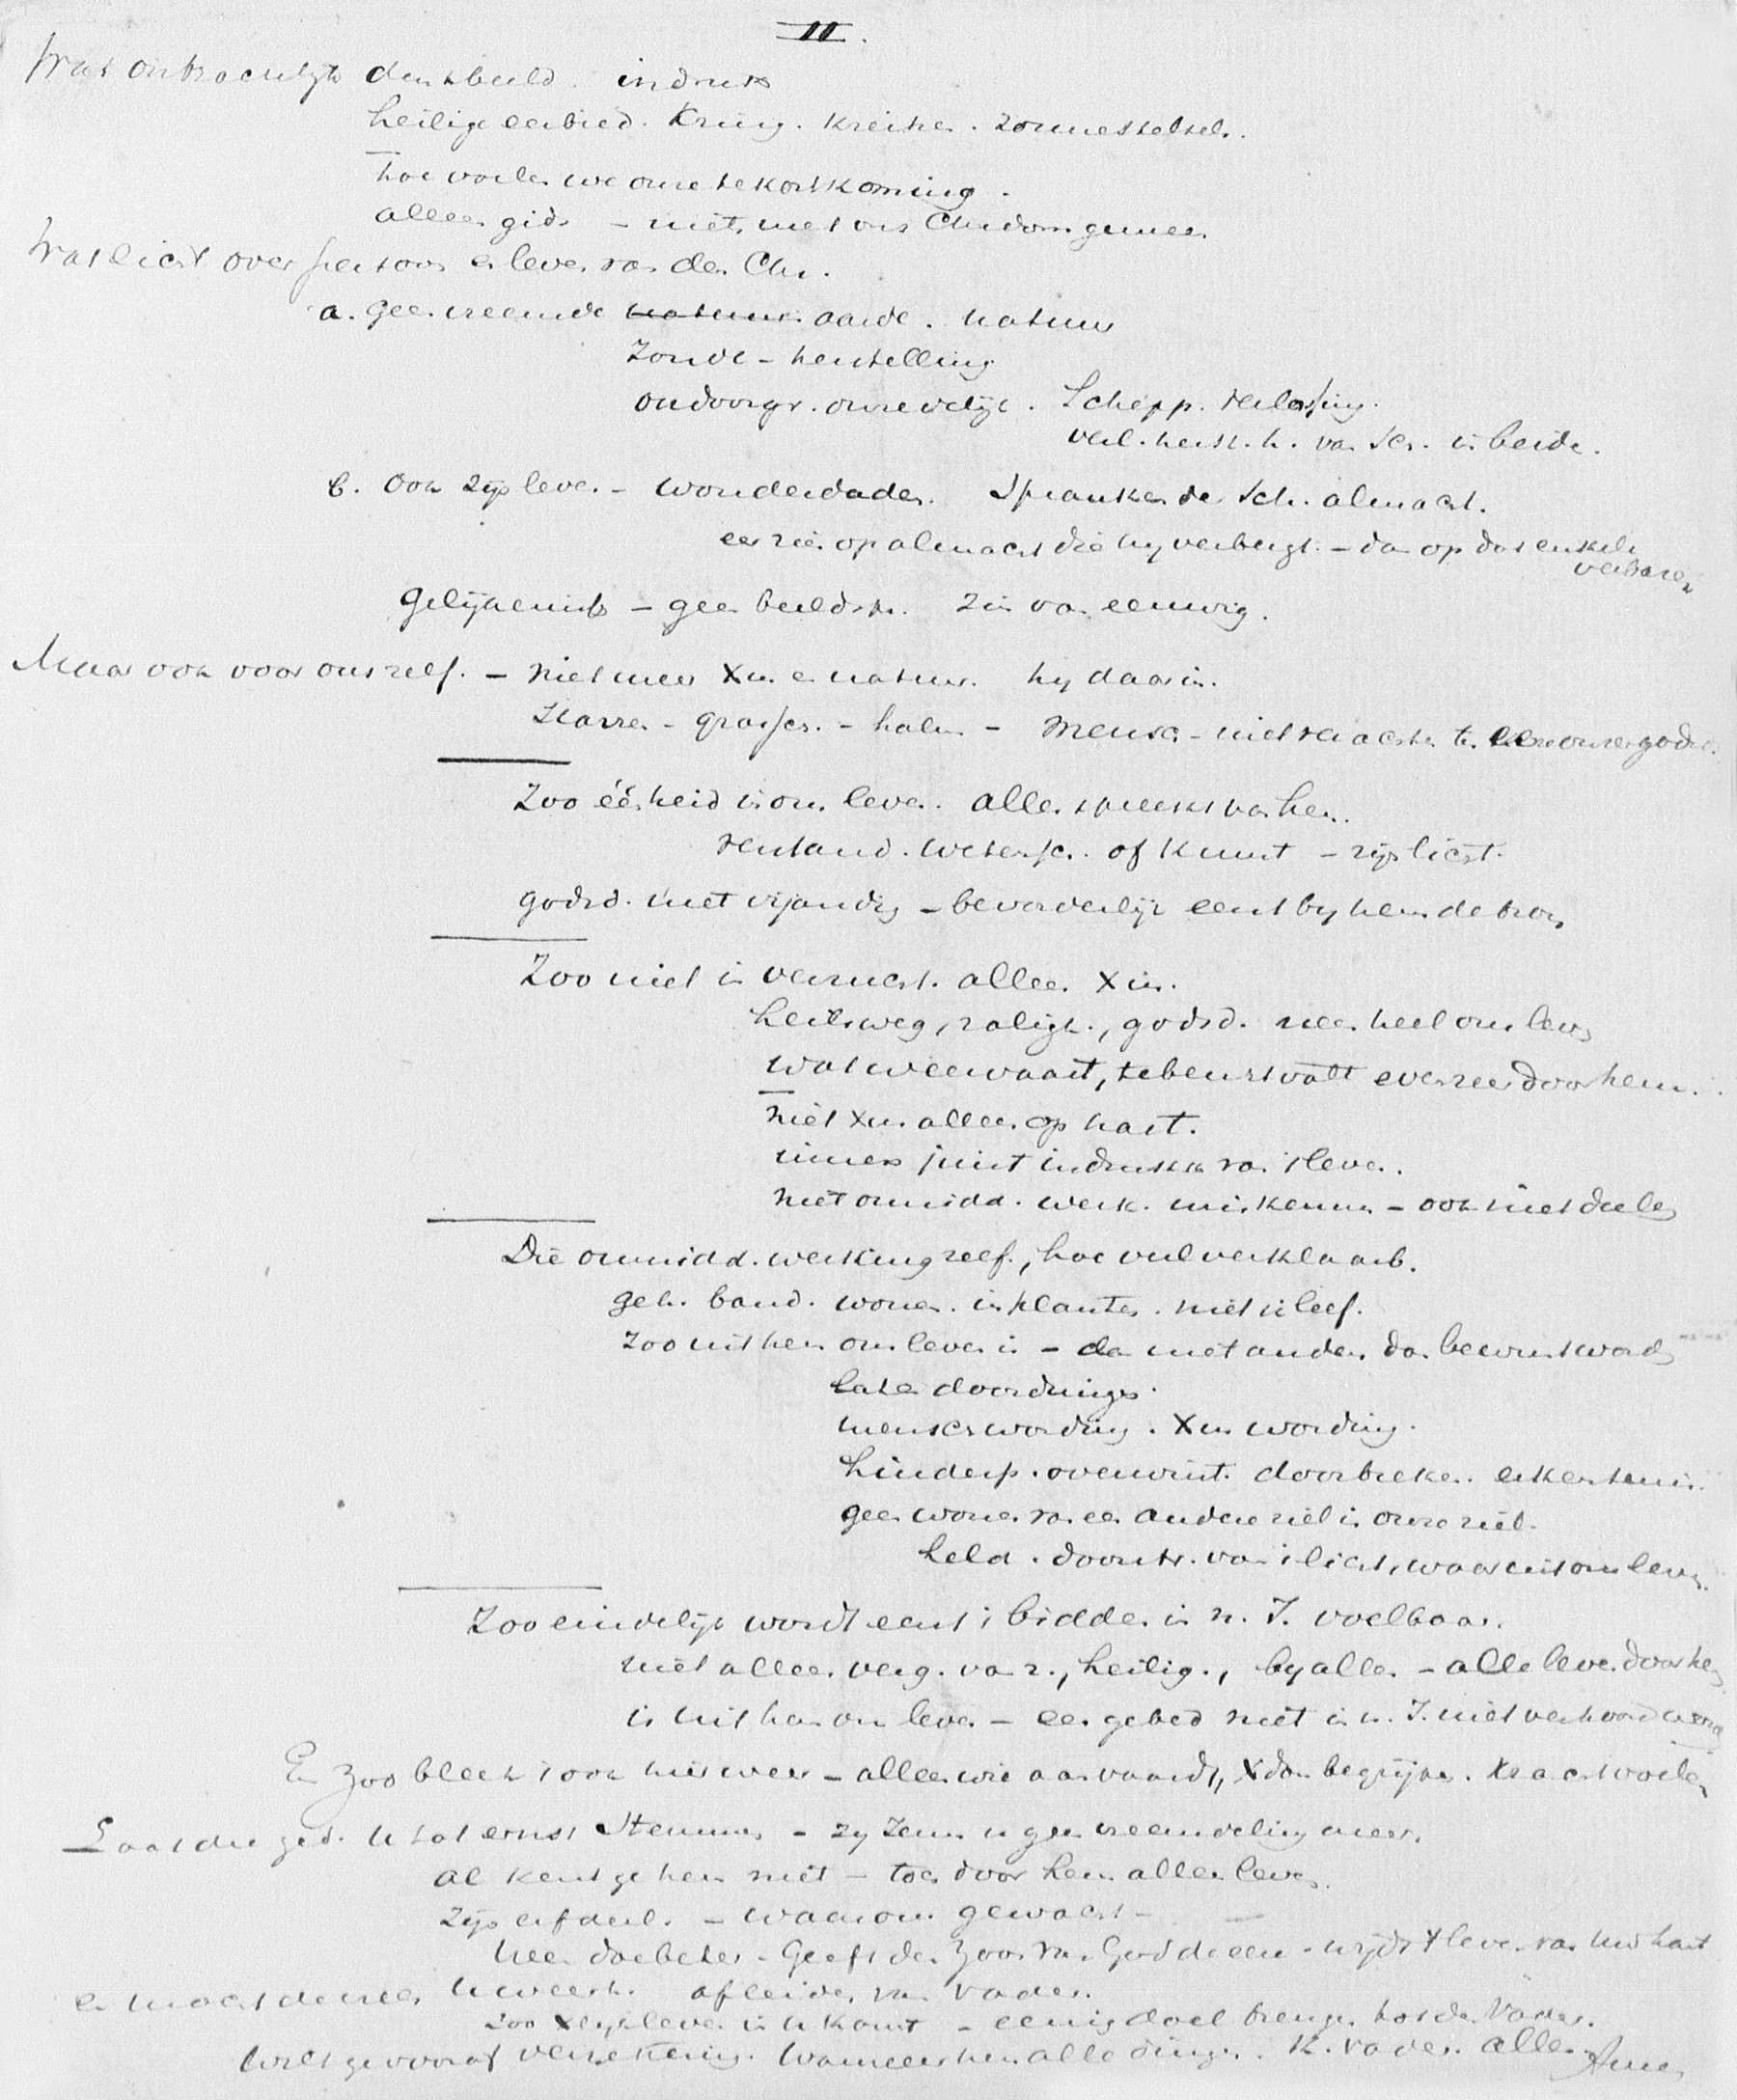 II.
Wat ontzachlyk denkbeeld. indruk
heilige eerbied. Kring. Kreits. zonnestelsel.
hoe voelen we onze tekortkoming.
alleen gids - niet, met ons Chrdom gemeen
Wat licht over persoon en leven van den Chr.
a. Geen vreemde natuur. aarde. natuur
Zonde - herstelling
ondoorgr. onredelijk. Schepp. verlossing.
verl. herst. h. van sch. in beide.
b. Ook zijn leven. - wonderdaden. Spranken der Sch. almacht.
eer zien op almacht die hy verbergt. - dan op dat enkele
verbazen
Gelijkeniss - geen beeldspr. zin van eeuwig.
Maar ook voor ons zelf. - niet meer Xus en natuur. hy daarin.
Starren - grasscheut - halm - Mensch - niet te onzen godsd.
Zoo éénheid in ons leven. alles spreekt van hem.
verstand. wetensch. of Kunst - zijn licht.
godsd. niet vijandig - bevorderlijk eerst by hem de bron
Zoo niet in vernucht. alleen Xus.
heilsweg, zaligh., godsd. neen heel ons leven
wat weervaart, te beurt valt evenzeer door hem.
niet Xus alleen op hart.
immers juist indrukken van 't leven.
niet onmidd. werk. miskennen - ook niet deelen
Die onmidd. werking zelf, hoe veel verklaarb.
geh. band. wonen. inplanten. niet in leef.
Zoo uit hem ons leven is - dan niet anders dan bewust worden
later doordringen.
menschwording. Xus wording.
hinderp. overwint. doorbreken. erkentenis.
geen wonen van een andere ziel in onze ziel.
held. doorstr. van 't licht, waaruit ons leven.
Zoo eindelijk wordt eerst 't bidden in n. J. voelbaar.
niet alleen verg. van z., heilig., by alles - alle leven door hem
is uit hem ons leven - een gebed niet in n. J. niet verhoord
En zoo bleek 't ook hier weer - alleen wie aanvaardt, X dan begrijpen. kracht voelen
Laat die ged. U tot ernst stemmen - zy Jezus u geen vreemdeling meer.
al kent ge hem niet - toch door hem alleen leven.
Zijn erfdeel. - waarom gewacht -
Neen doe beter - Geeft den Zoon van God de eer - wijdt 't leven van Uw hart
en mocht deze U weerh. afleiden van Vader.
Zoo Xelijk leven is U komt - eenig doel brengen tot den Vader.
Wilt ge vooraf verzekering. Wanneer hem alle dingen. K. vader. alles. Amen